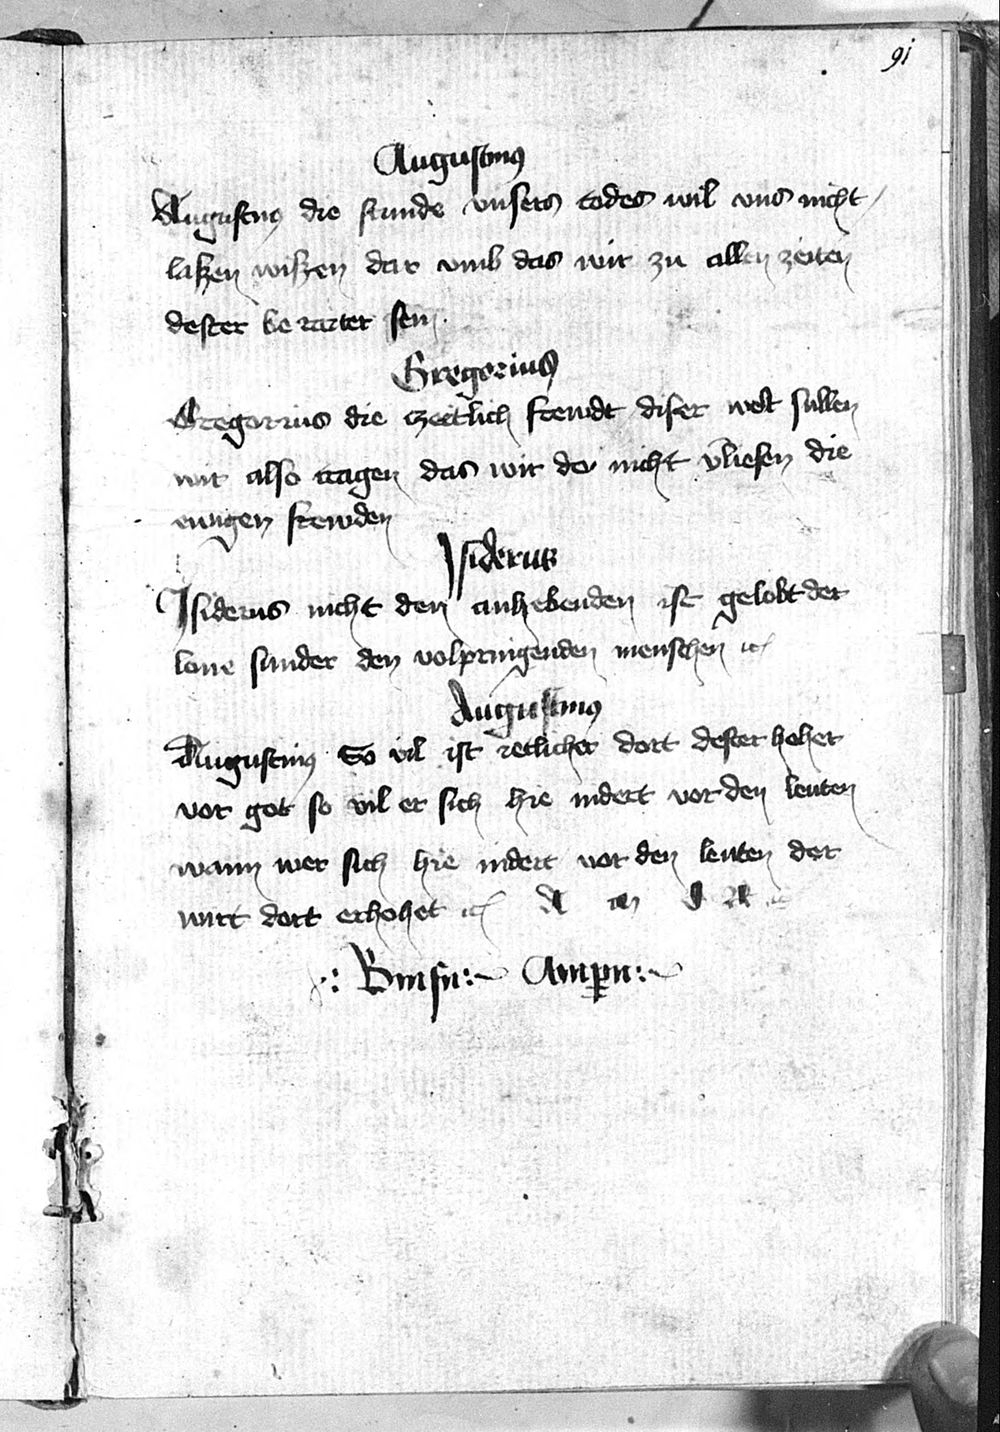 91
Augustinus
Augustinus die stunde vnsers todes wil vns nicht
laszen wiszen dar vmb das wir zu allen zeiten
dester be raiter sein
Gregorius
Gregorius die czeitlich frewdt diser welt sullen
wir also tragen das wir do nicht v̄liesen die
ewigen frewden
Isiderus
Isiderus nicht den anhebenden ist gelobt der
lone sunder den volpringenden menschen
Augustinus
Augustinus So vil ist ietlicher dort dester hoher
vor got so vil er sich hie nidert vor den leuten
wann wer sich hie nidert vor den leuten der
wirt dort erhohet